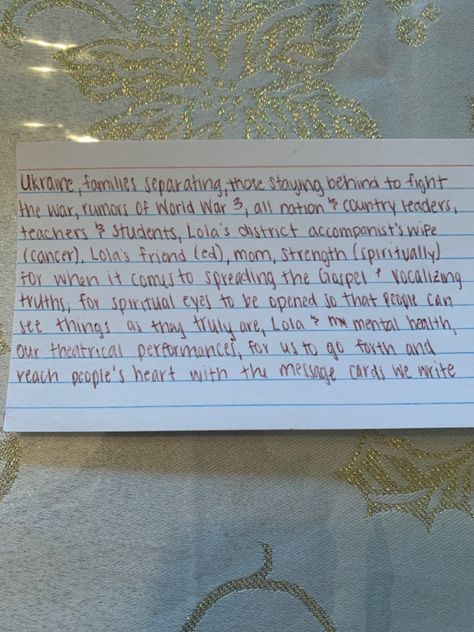 Ukraine, families separating, those staying behind to fight
the war, rumors of World War 3, all nation & country leaders,
teachers & students, Lola's district accompanist's wife
(cancer), Lola's friend (ed), mom, strength (spiritually)
for when it comes to spreading the Gospel + vocalizing
truths, for spiritual eyes to be opened so that people can
see things as they truly are, Lola & my mental health,
our theatrical performances, for us to go forth and
reach people's heart with the message cards we write